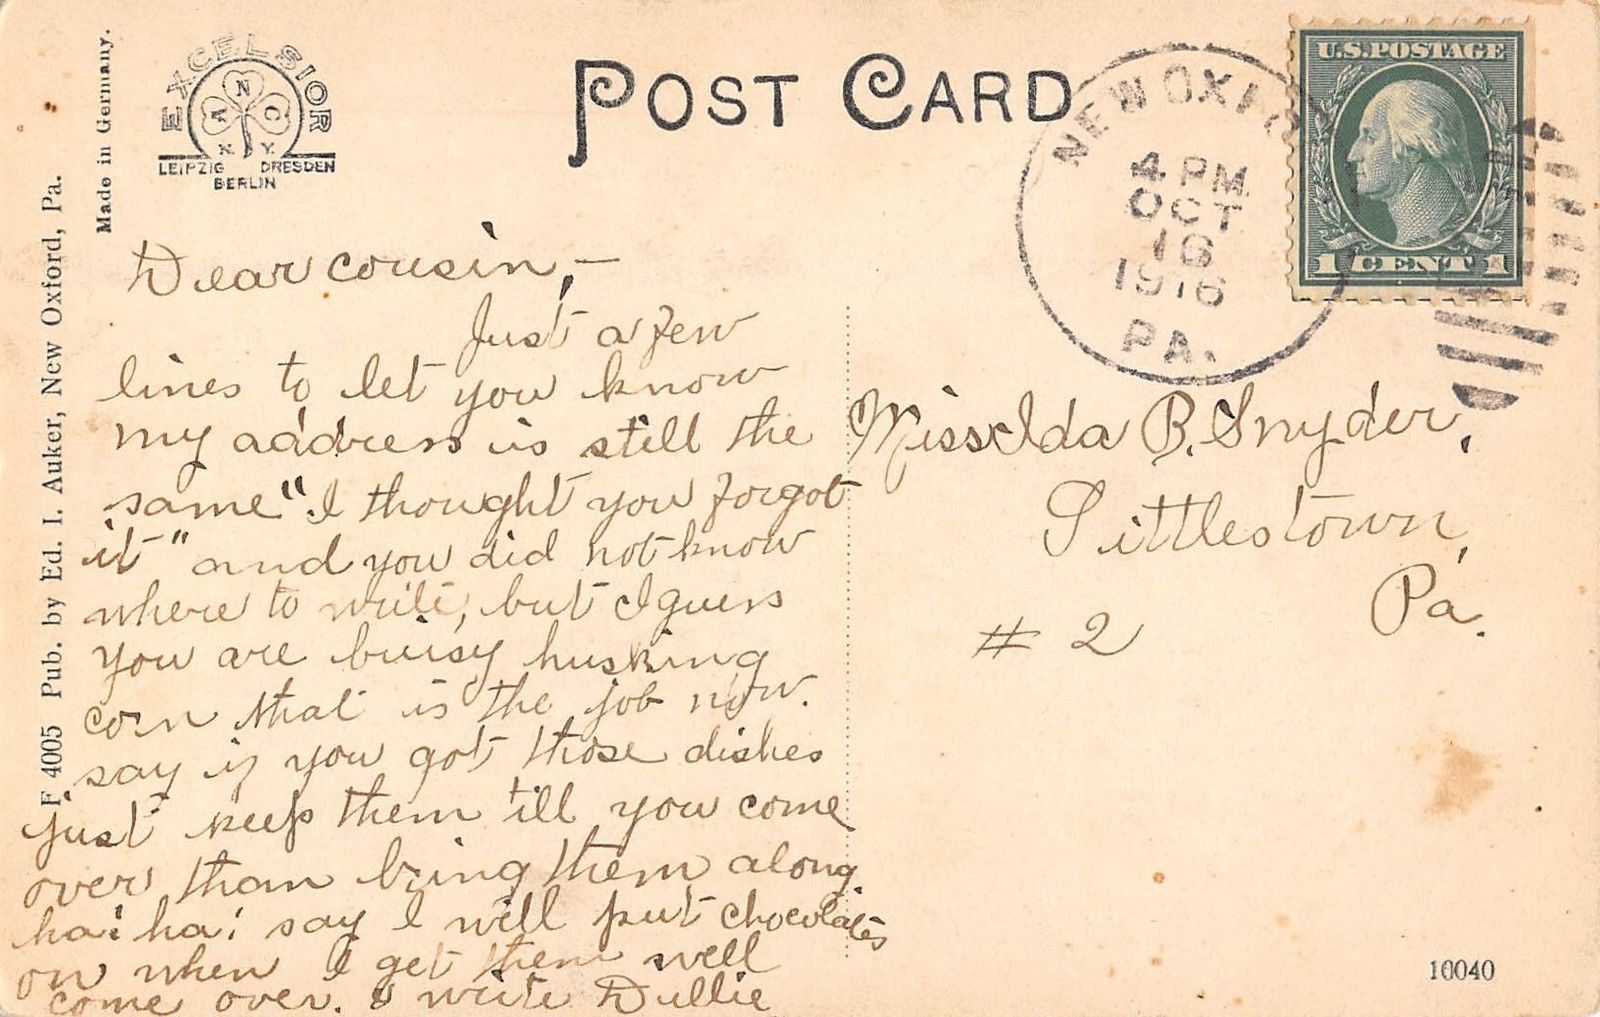 Made in Germany.
F 4005 Pub. by Ed. I. Auker, New Oxford, Pa.
EXCELSIOR
NANCY
N.Y.
LEIPZIG DRESDEN
BERLIN
POST CARD
NEW OXFO
4 PM
OCT
16
1916
PA.
U.S. POSTAGE
1 CENT 1
Dear cousin,—
Just a few
lines to let you know
my address is still the
same "I thought you forgot
it" and you did not know
where to write, but I guess
you are buisy husking
corn that is the job now.
say if you got those dishes
just keep them till you come
over than bring them along
ha! ha! say I will put chocolates
on when I get them well
come over. & write Dullie
Miss Ida B. Snyder,
Littlestown,
Pa.
# 2
10040